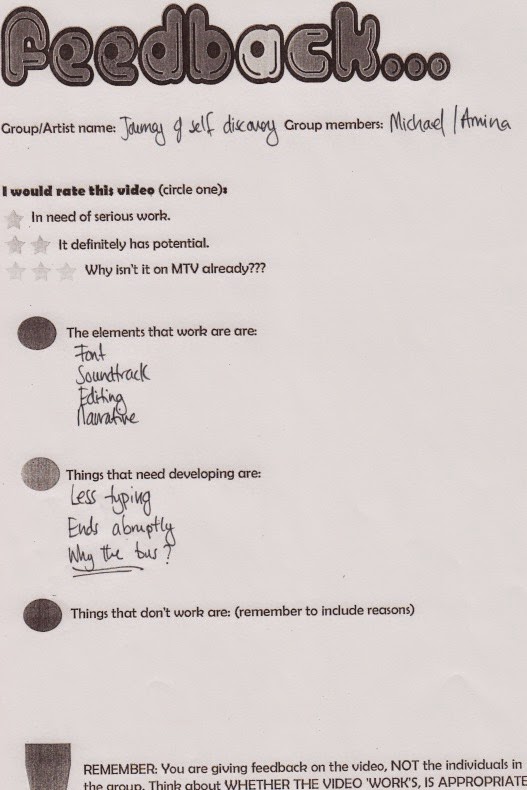 feedback...
Group/Artist name: Journey of self discovery Group members: Michael / Amina
I would rate this video (circle one):
In need of serious work.
It definitely has potential.
Why isn't it on MTV already???
The elements that work are are:
Font
Soundtrack
Editing
Narrative
Things that need developing are:
Less typing
Ends abruptly
Why the bus?
Things that don't work are: (remember to include reasons)
REMEMBER: You are giving feedback on the video, NOT the individuals in
the group. Think about WHETHER THE VIDEO 'WORK'S, IS APPROPRIATE